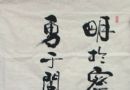 明於察
勇于開